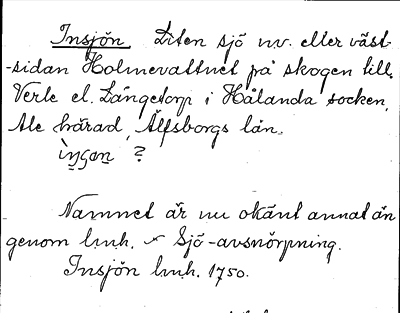 Insjön Liten sjö nv. eller väst-
-sidan Holmevattnet på skogen till
Verle el. Långetorp i Hålanda socken,
Ale härad, Älfsborgs län.
ìŋʃøn ?
Namnet är nu okänt annat än
genom lmh. Sjö-avsnörpning.
Insjön lmh. 1750.